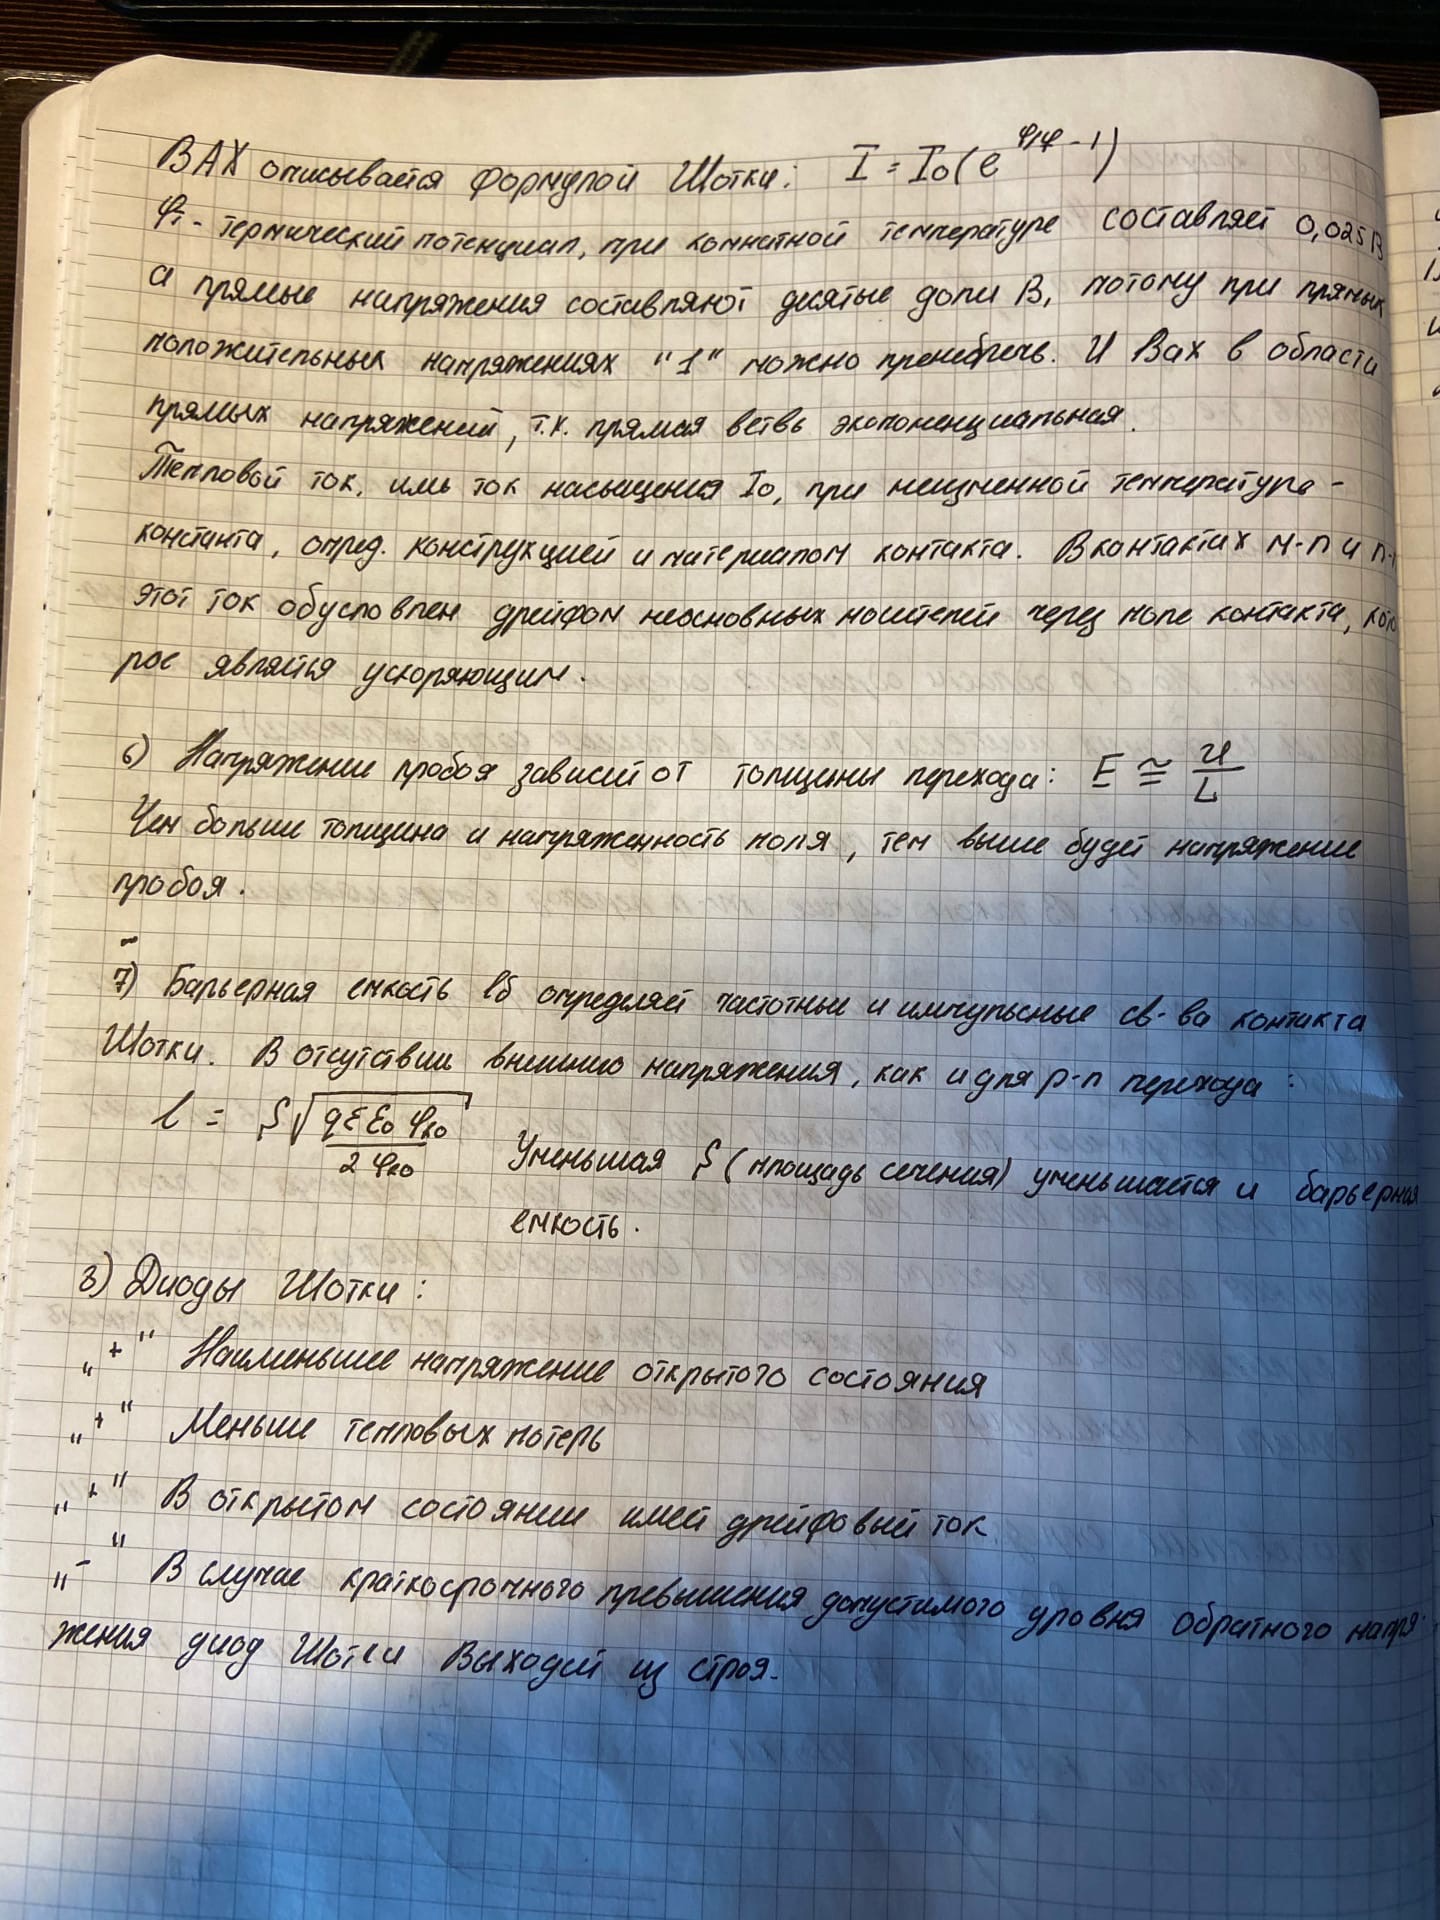 ВАХ описывается формулой Шотки: I = I₀(e^φ/φ - 1)
φт - термический потенциал, при комнатной температуре составляет 0,025В
а прямые напряжения составляют десятые доли В, потому при прямых
положительных напряжениях "1" можно пренебречь. И Вах в области
прямых напряжений, т.к. прямая ветвь экпоненциальная.
Тепловой ток, иль ток насыщения I₀, при неизменной температуре -
константа, опред. конструкцией и материалом контакта. В контактах м-п и
этот ток обусловлен дрейфом неосновных носителей через поле контакта, кото
рое является ускоряющим.
6) Напряжение пробоя зависит от толщины перехода: E ≅ U/L
Чем больше толщина и напряженность поля, тем выше будет напряжение
пробоя.
7) Барьерная емкость Cб определяет частотные и импульсные св-ва контакта
Шотки. В отсутствии внешнего напряжения, как и для p-n перехода:
C = S√(qεε₀φк₀/2φк₀)
Уменьшая S (площадь сечения) уменьшается и барьерная
емкость.
8) Диоды Шотки:
„+" Наименьшее напряжение открытого состояния
„+" Меньше тепловых потерь
„+" В открытом состоянии имеет дрейфовый ток
„-" В случае краткосрочного превышения допустимого уровня обратного напря-
жения диод Шотки выходит из строя.